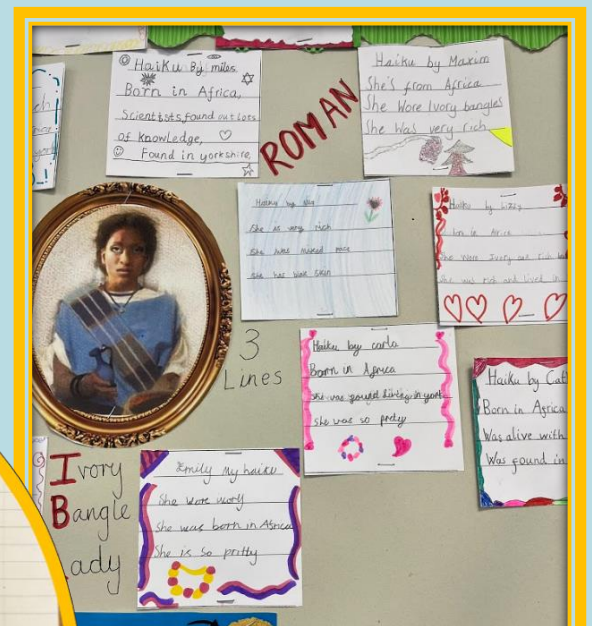 Haiku By miles
Born in Africa,
Scientists found out lots
of knowledge,
Found in yorkshire,
ROMAN
Haiku by Maxim
She's from Africa
She Wore Ivory bangles
She Was very rich
Haiku by
She is very rich
She was mixed race
She has blak skin
Haiku by Lizzy
She was rich and lived in
3
Lines
Haiku by carla
Born in Africa
She was found living in york
She was so pretty
Haiku by Cat
Born in Africa
Was alive with
Was found in
Ivory
Bangle
ady
Emily My haiku
She wore
She was born in Africa
She is so pritty